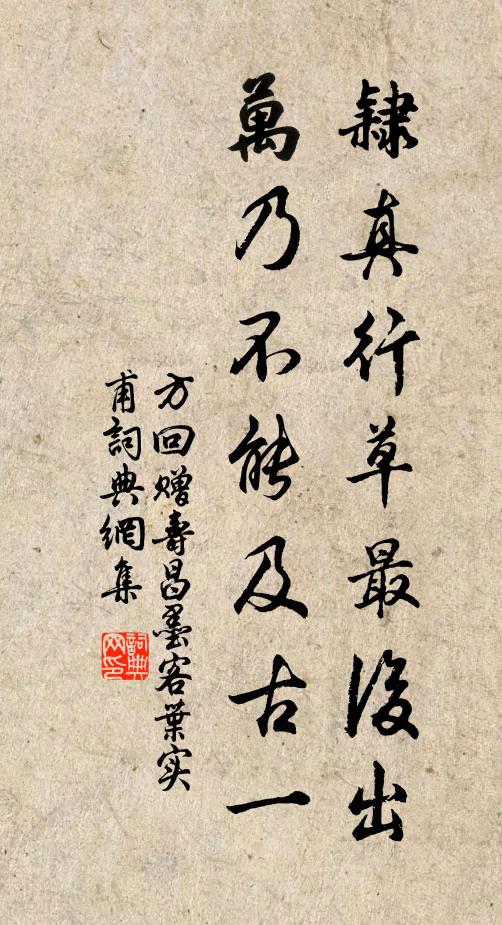 隸真行草最後出
萬乃不能及古一
方回赠壽昌墨客葉实
甫詞典網集
詞典网印